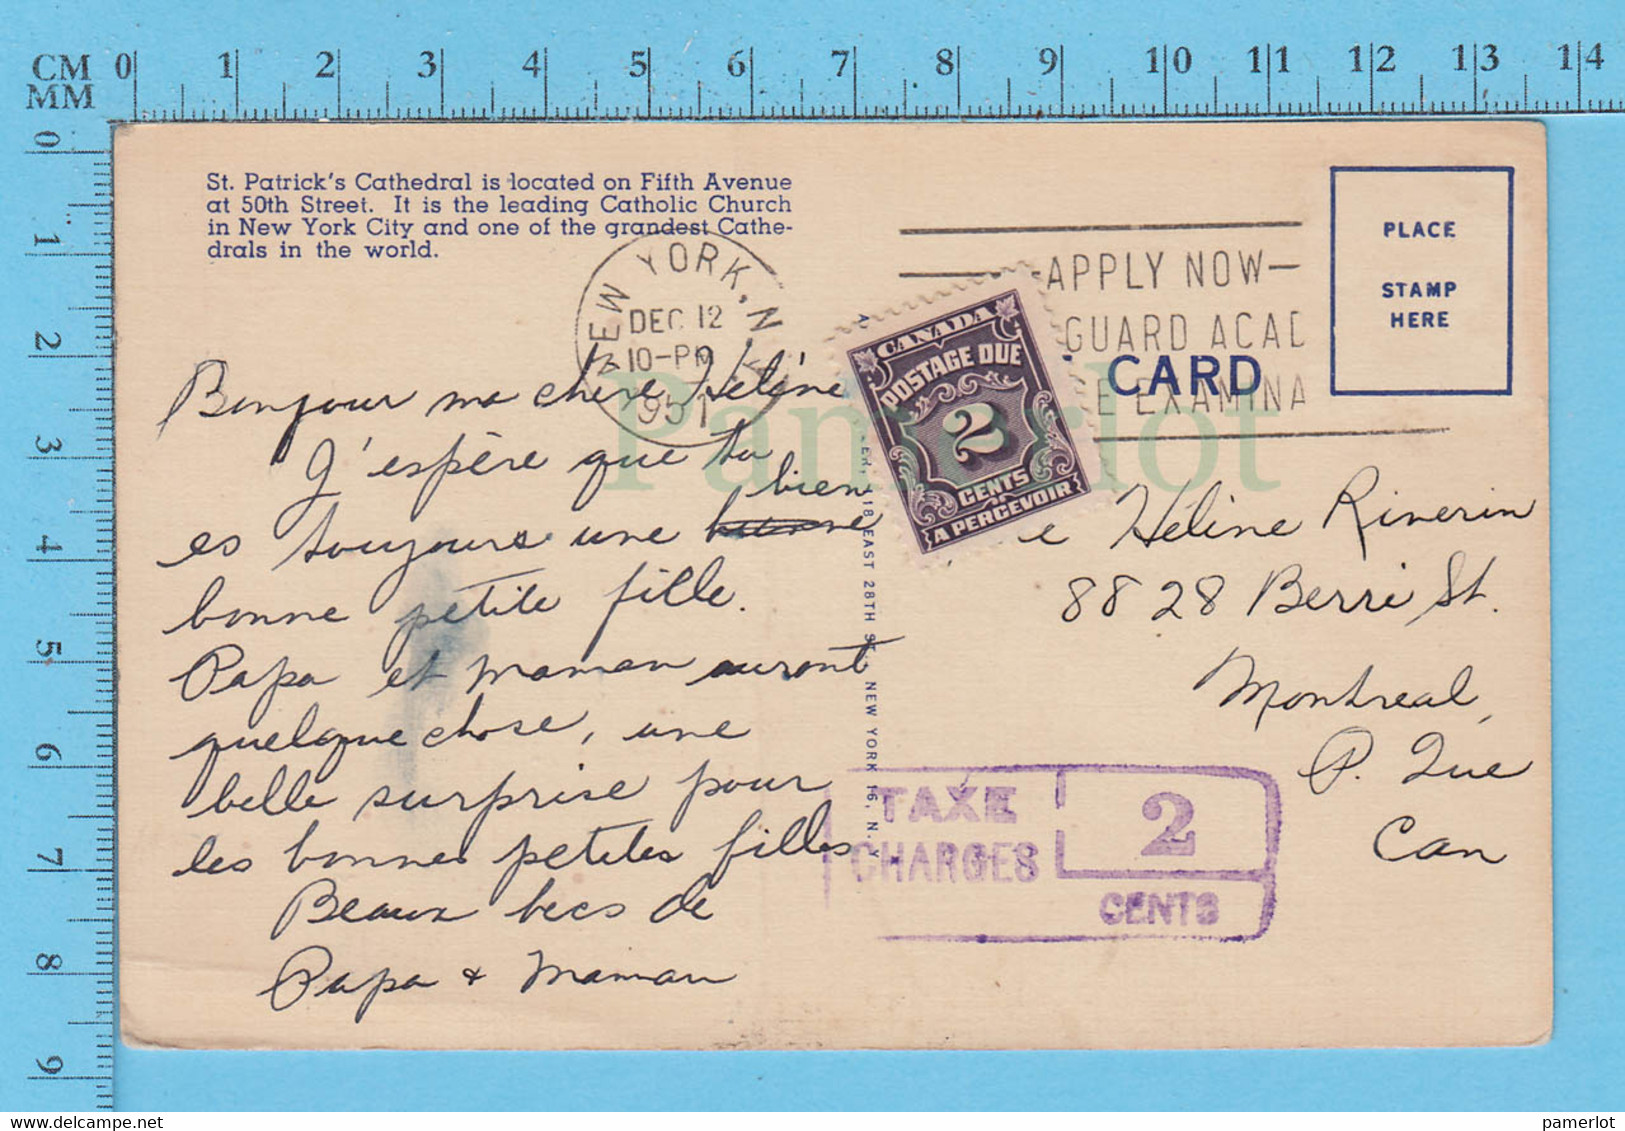 CM 0 1 2 3 4 5 6 7 8 9 10 11 12 13 14
MM
0
1
2
3
4
5
6
7
8
9
St. Patrick's Cathedral is located on Fifth Avenue
at 50th Street. It is the leading Catholic Church
in New York City and one of the grandest Cathe-
drals in the world.
NEW YORK, N.
DEC 12
10-PM
1951
APPLY NOW
GUARD ACAD
E EXAMINA
PLACE
STAMP
HERE
CARD
CANADA
POSTAGE DUE
2
CENTS
A PERCEVOIR
Pamerlot
Bonjour ma chère Hélène
J'espère que tu
bien
es toujours une
bonne petite fille.
Papa et Maman auront
quelque chose, une
belle surprise pour
les bonnes petites filles
Beaux becs de
Papa + Maman
118 EAST 28TH ST., NEW YORK 16, N. Y.
e Hélène Riverin
8828 Berri St.
Montreal,
P. Que
Can
TAXE
CHARGES
2
CENTS
pamerlot